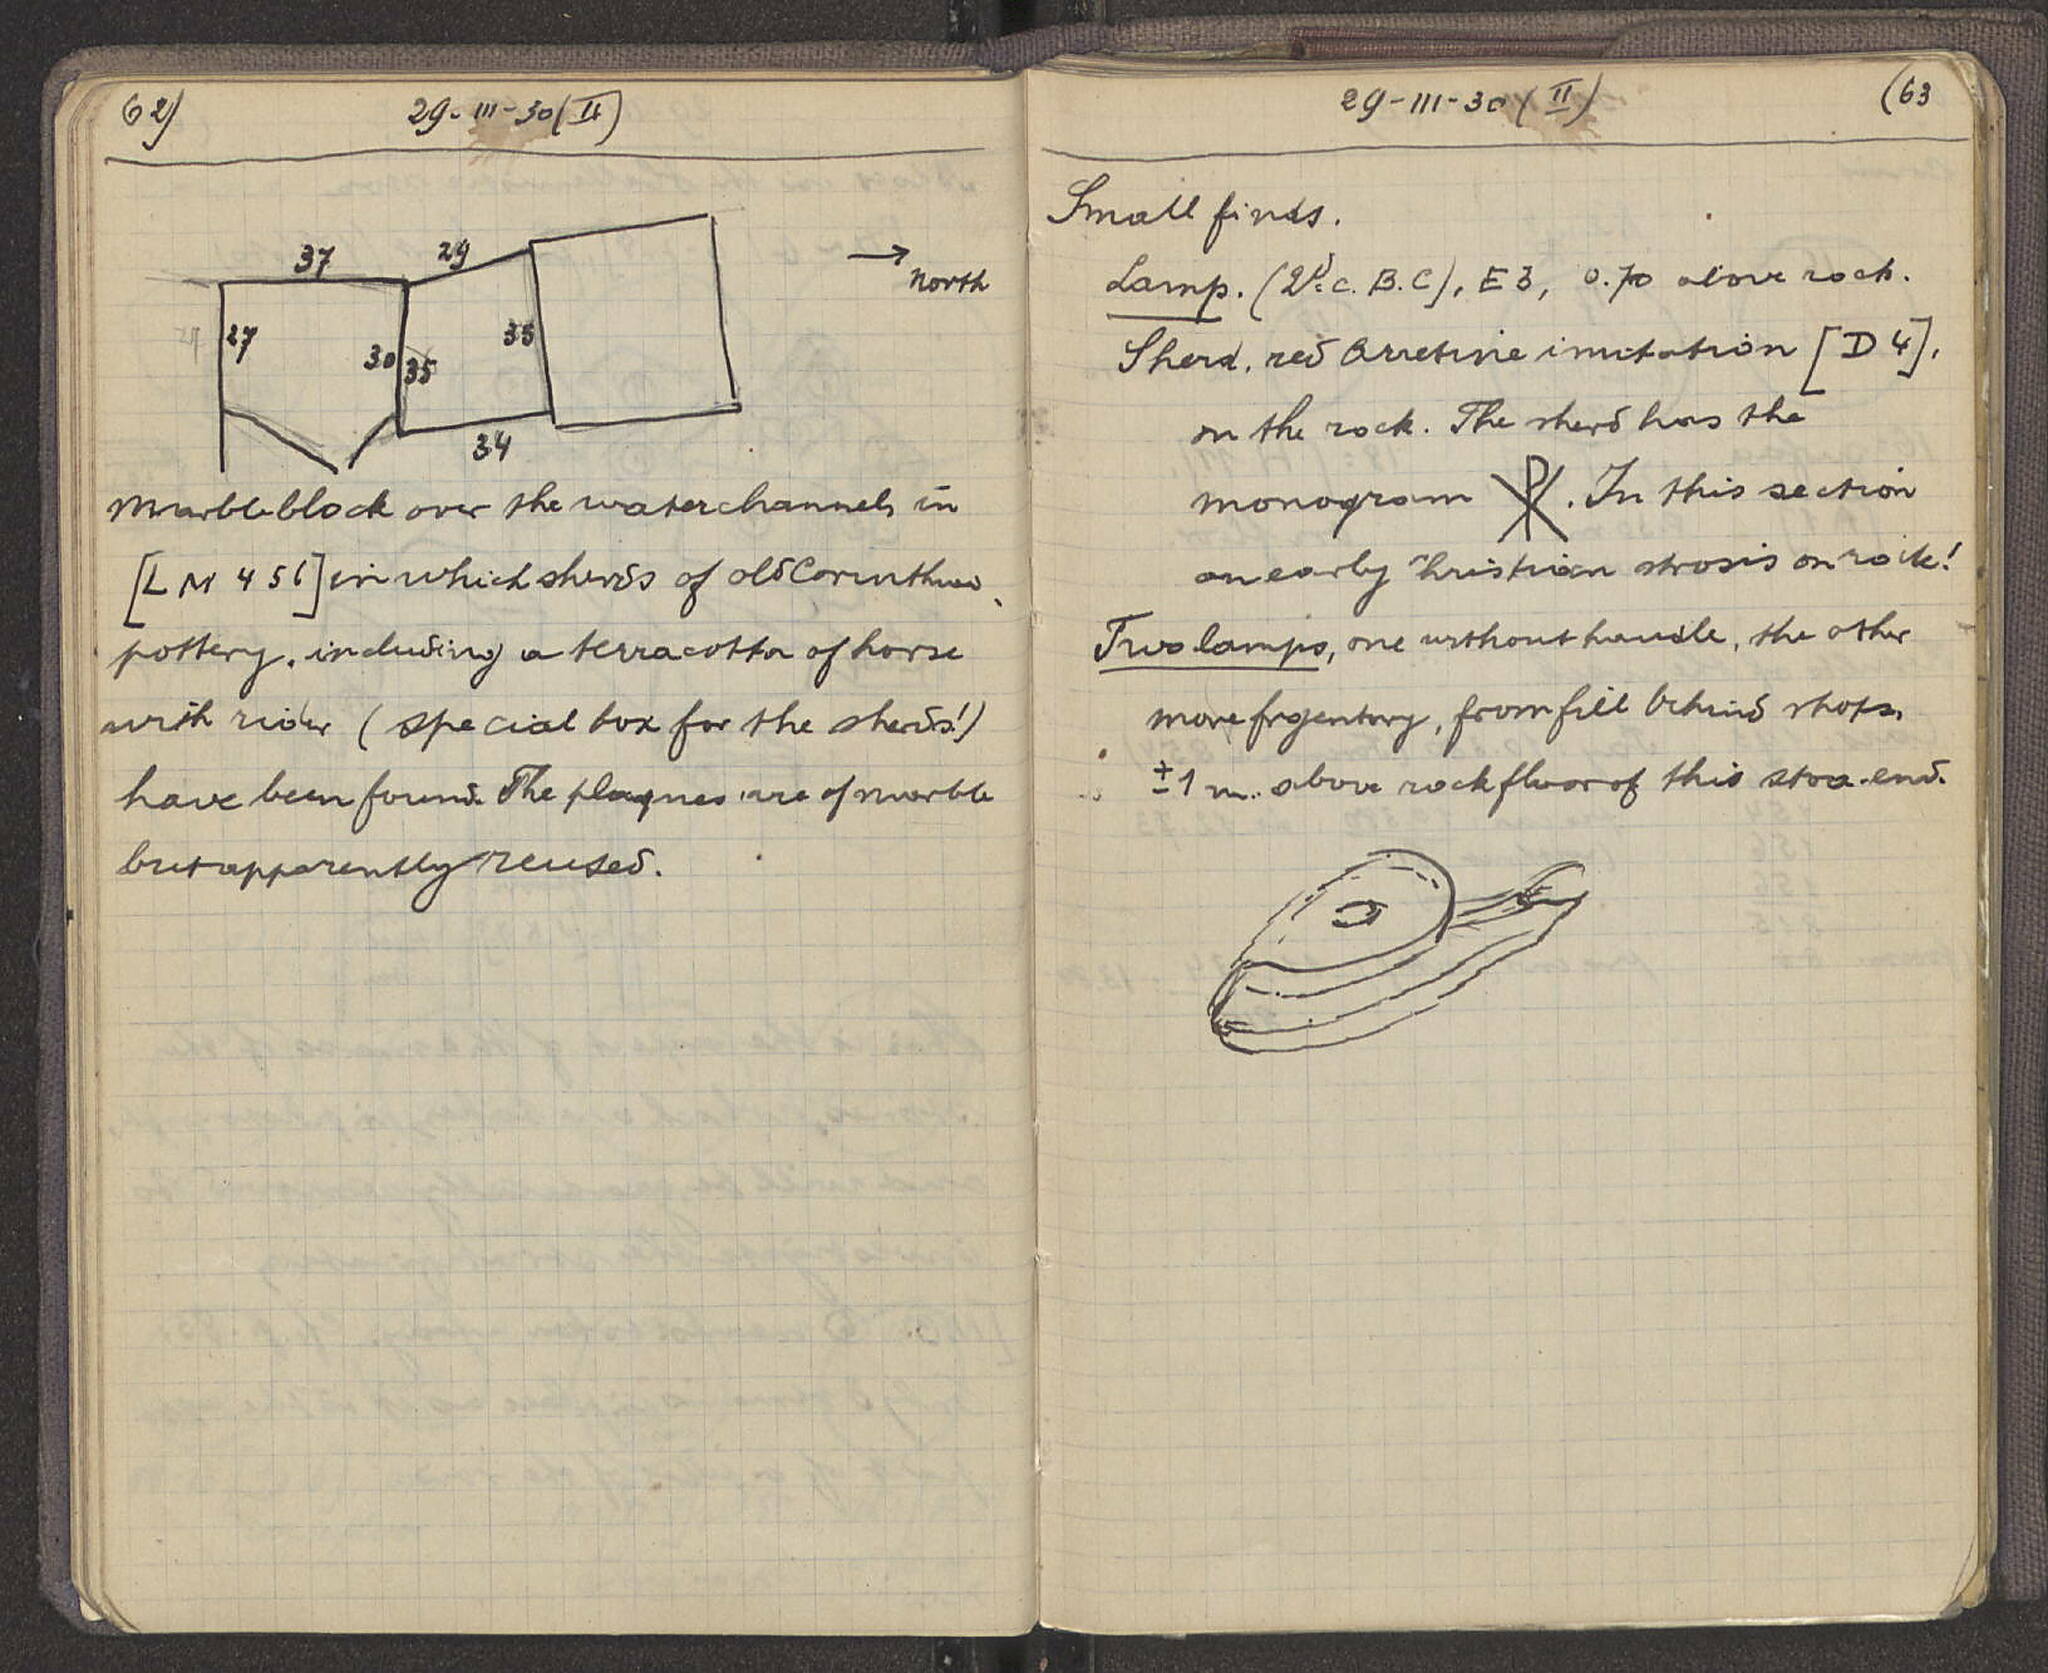 62)
29-III-30 (II)
37
29
→ North
27
30
35
35
34
Marble block over the waterchannels in
[L M 4 5 6] in which sherds of old Corinthian
pottery, including a terracotta of horse
with rider (special box for the sherds!)
have been found. The plaques are of marble
but apparently reused.
29-III-30 (II)
(63
Small finds.
Lamp. (2d c. B.C), E3, 0.70 above rock.
Sherd, red Arretine imitation [D 4],
on the rock. The sherd has the
monogram ☧. In this section
an early Christian strosis on rock!
Two lamps, one without handle, the other
more frgentary, from fill behind shops,
±1 m. above rockfloor of this stoa-end.